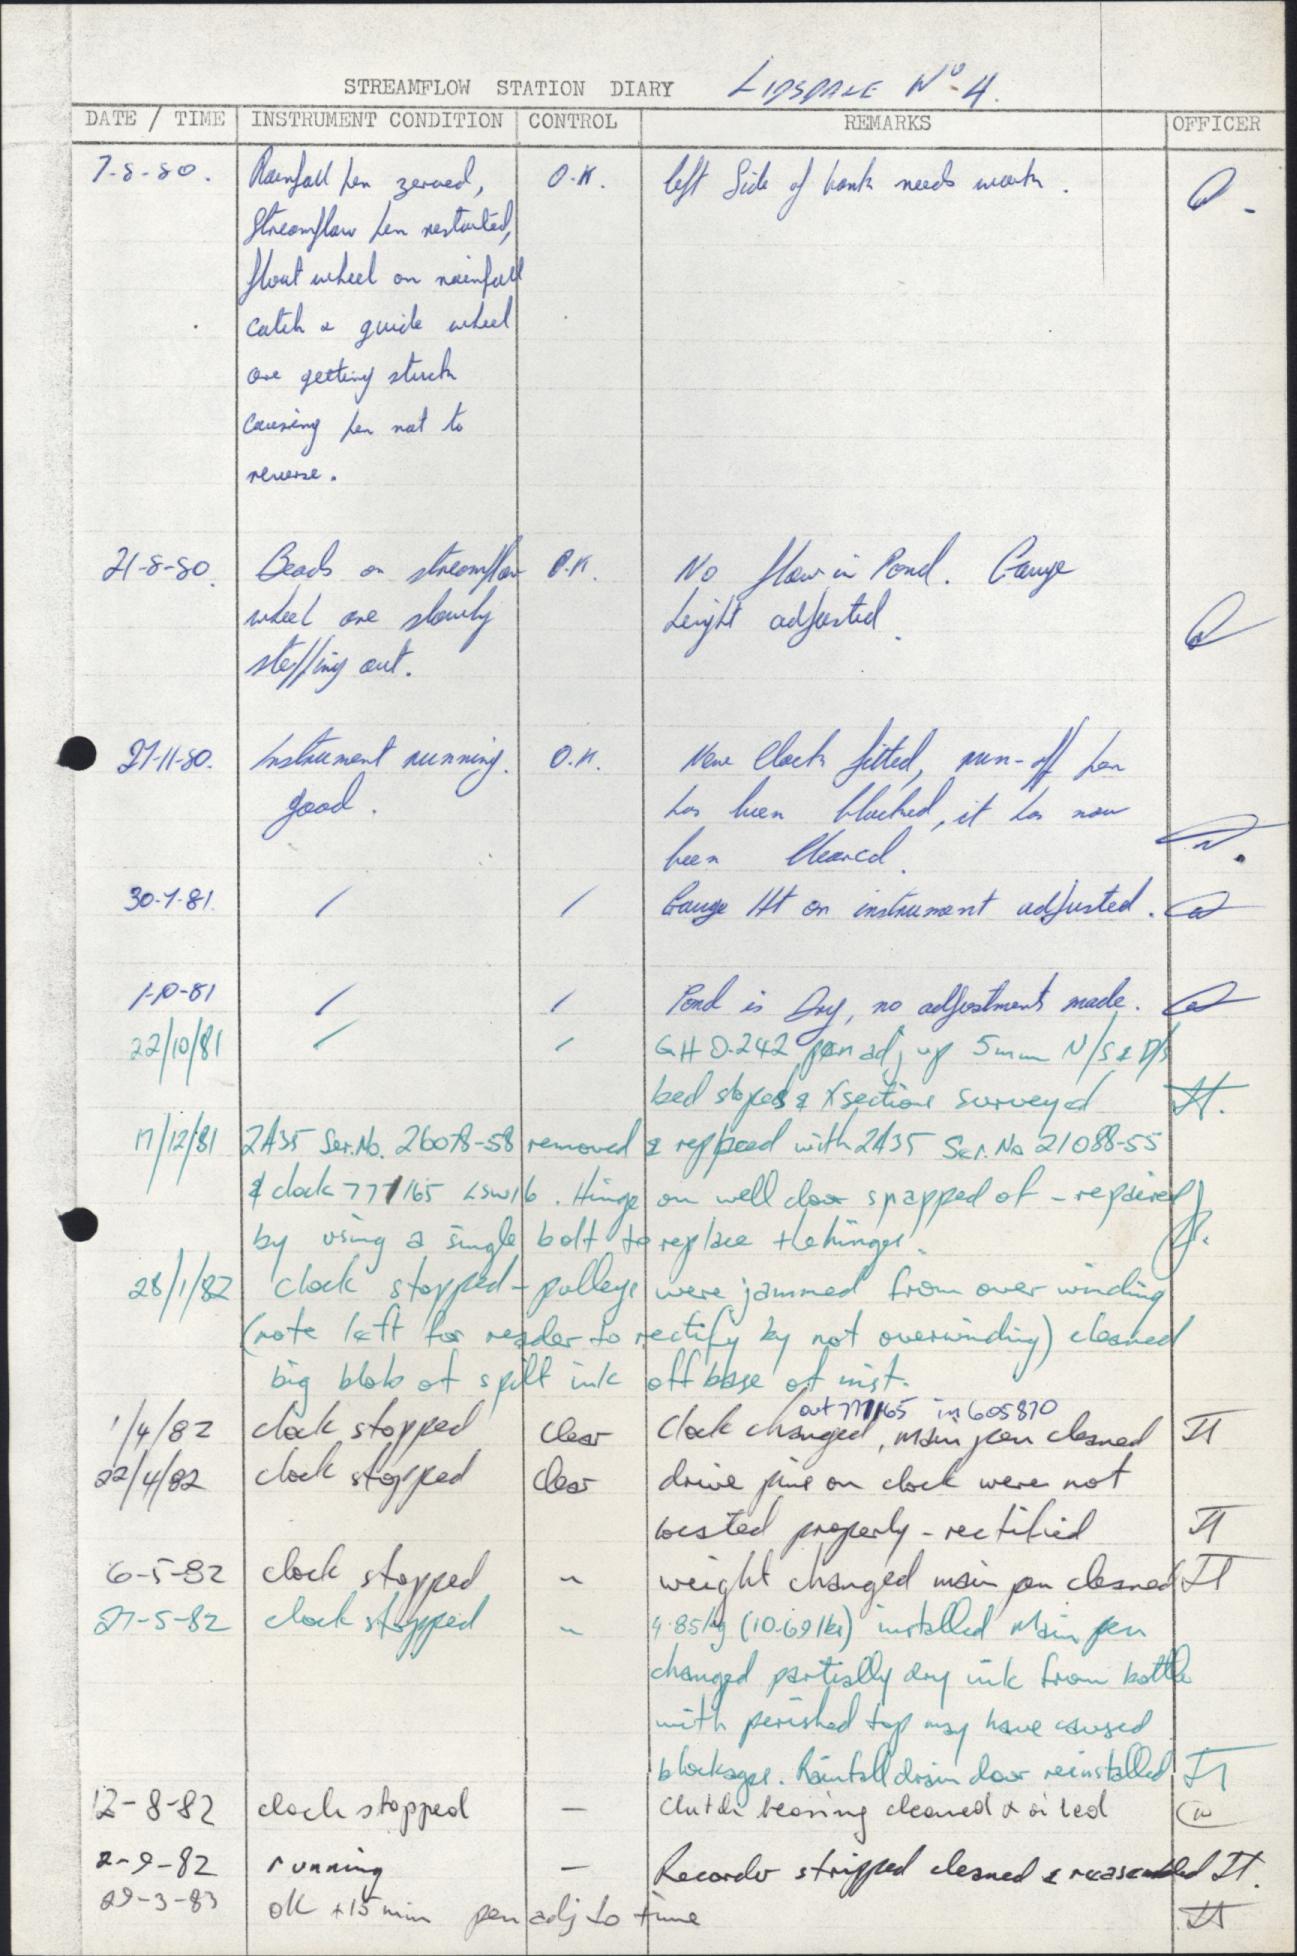 STREAMFLOW STATION DIARY LIDSDALE No. 4.
DATE / TIME INSTRUMENT CONDITION CONTROL REMARKS OFFICER
7-8-80. Rainfall pen zeroed, O.K. left side of bank needs work.
Streamflow pen restarted,
float wheel on rainfall
catch & guide wheel
are getting stuck
causing pen not to
reverse.
21-8-80. Beads on streamflow O.K. No flow in Pond. Gauge
wheel are slowly height adjusted.
stepping out.
27-11-80. Instrument running. O.K. New Clock fitted, run-off pen
good. has been blocked, it has now
been cleared.
30-7-81. / / Gauge Ht on instrument adjusted.
1-10-81 / / Pond is Dry, no adjustments made.
22/10/81 / / GH 0.242 pen adj up 5mm N/S & D/S
bed slopes & Xsections surveyed JT.
17/12/81 2A35 Ser.No. 26078-58 removed & replaced with 2A35 Ser. No 21088-55
& clock 777165 LSW16. Hinge on well door snapped of - repaired
by using a single bolt to replace the hinges.
28/1/82 clock stopped - pulleys were jammed from over winding
(note left for reader to rectify by not overwinding) cleaned
big blob of spilt ink off base of inst.
out 777165 in 605870
1/4/82 clock stopped clear clock changed, main pen cleaned JT
22/4/82 clock stopped clear drive pins on clock were not
located properly - rectified JT
6-5-82 clock stopped ~ weight changed main pen cleaned JT
27-5-82 clock stopped ~ 4.85kg (10.69 lbs) installed Main pen
changed partially dry ink from bottle
with perished top may have caused
blockages. Rainfall drain door reinstalled JT
12-8-82 clock stopped — Clutch bearing cleaned & oiled
2-9-82 running — Recorder stripped cleaned & reassembled JT.
29-3-83 OK +15 min pen adj to time JT